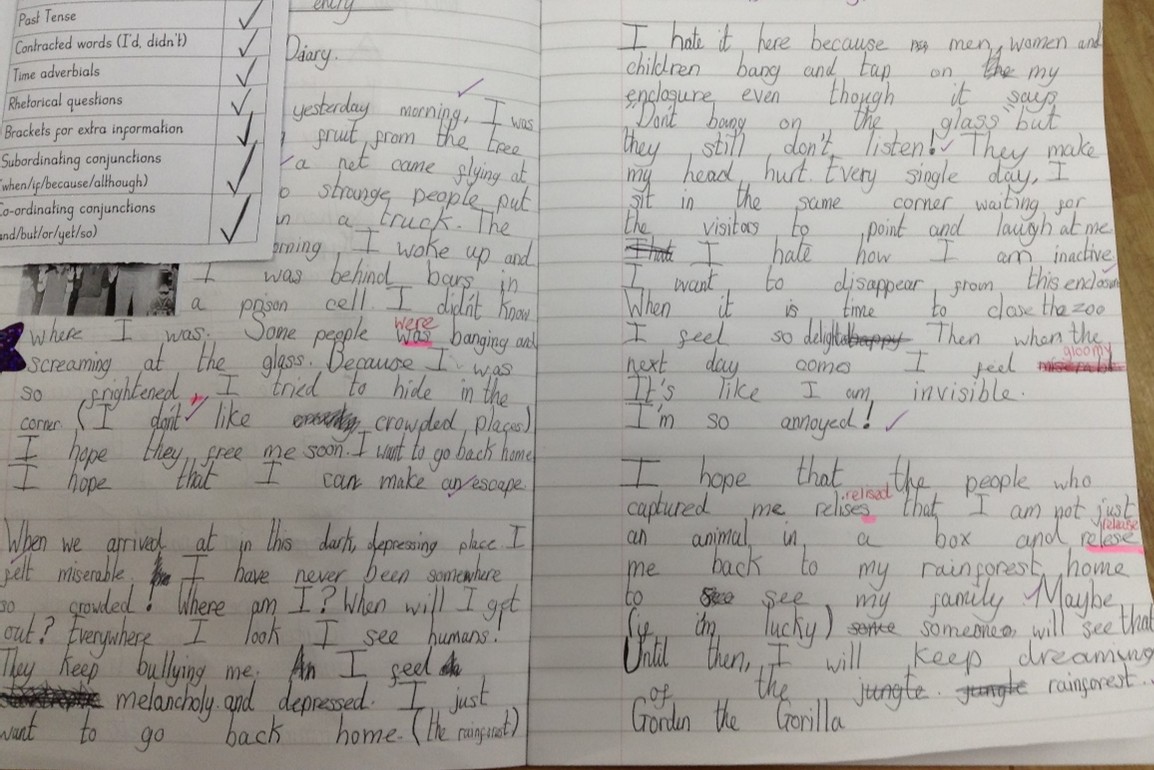 Past Tense
Contracted words (I'd, didn't)
Time adverbials
Rhetorical questions
Brackets for extra information
Subordinating conjunctions
(when/if/because/although)
Co-ordinating conjunctions
and/but/or/yet/so)
entry
Diary.
yesterday morning, I was
fruit from the tree
a net came flying at
strange people put
in a truck. The
I woke up and
I was behind bars in
a prison cell. I didn't know
where I was. Some people were was banging and
screaming at the glass. Because I was
so frightened, I tried to hide in the
corner (I don't like crowded places)
I hope they free me soon. I want to go back home
I hope that I can make an escape
When we arrived at in this dark, depressing place I
felt miserable. I have never been somewhere
so crowded! Where am I? When will I get
out? Everywhere I look I see humans!
They keep bullying me. I feel
melancholy and depressed. I just
want to go back home. (the rainforest)
I hate it here because men, women and
children bang and tap on the my
enclosure even though it says
"Dont bang on the glass" but
they still don't listen! They make
my head hurt. Every single day, I
sit in the same corner waiting for
the visitors to point and laugh at me.
That I hate how I am inactive.
I want to disappear from this enclosure
When it is time to close the zoo
I feel so delight happy Then when the
next day comes I feel gloomy miserable
It's like I am invisible.
I'm so annoyed!
I hope that the people who
captured me relises relised that I am not just
an animal in a box and relese release
me back to my rainforest home
to see see my family Maybe
(if im lucky) some someone will see that
Until then, I will keep dreaming
of the jungle. jungle rainforest..
Gordon the Gorilla